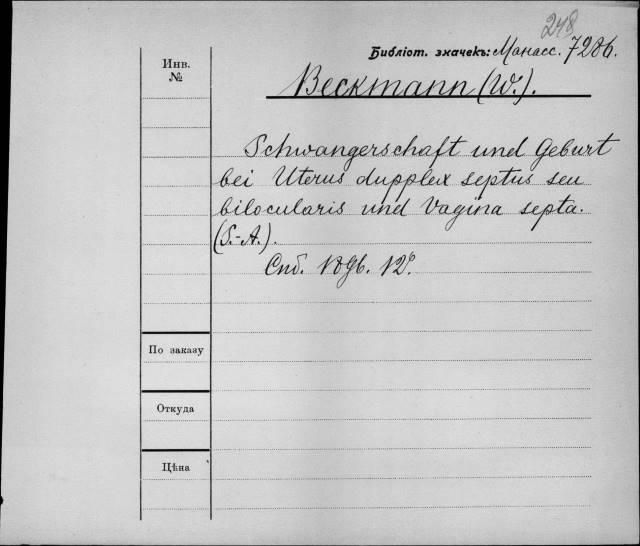 248
Инв.
№
Библіот. значекъ: Манасс. 7286.
Beckmann (W.).
Schwangerschaft und Geburt
bei Uterus dupplex septus seu
bilocularis und Vagina septa.
(S.-A.).
Спб. 1896. 12°.
По заказу
Откуда
Цѣна